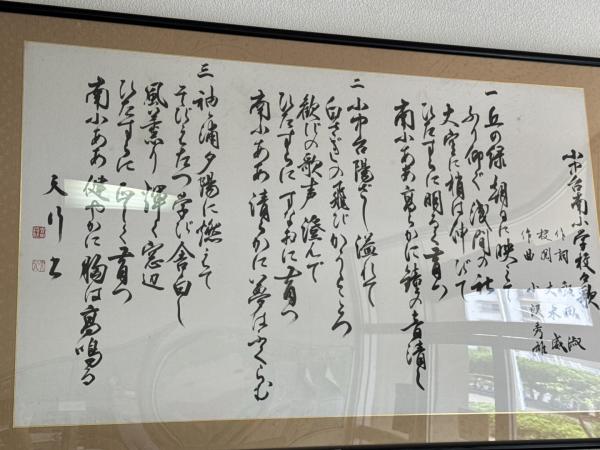 小中台南小学校々歌
作詞
校閲 大木 威
作曲 小沢秀雄
一 丘の緑 朝日に映えて
ふり仰ぐ 浅間の社
大空に梢は伸びて
ひたすらに明るく育つ
南小ああ 高らかに鐘の音清し
二 小中台陽ざし溢れて
白さぎの飛びかうところ
歓びの歌声澄んで
ひたすらに すなおに育つ
南小ああ 清らかに夢はふくらむ
三 袖ヶ浦夕陽に燃えて
そびえたつ学び舎白し
風薫り 輝く窓辺
ひたすらに 正しく育つ
南小ああ 健やかに胸は高鳴る
天行書